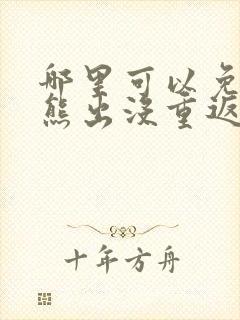 哪里可以免
熊出没重返
十年方舟